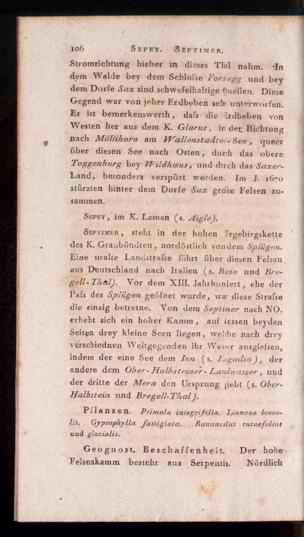 106 SEPEY. SEPTIMER.
Stromrichtung hieher in dieses Thal nahm. In
dem Walde bey dem Schlosse Forsegg und bey
dem Dorfe Sax sind schwefelhaltige Quellen. Diese
Gegend war von jeher Erdbeben sehr unterworfen.
Es ist bemerkenswerth, daſs die Erdbeben von
Westen her aus dem K. Glarus, in der Richtung
nach Müllihorn am Wallenstadter-See, queer
über diesen See nach Osten, durch das obere
Toggenburg bey Wildhaus, und durch das Saxer-
Land, besonders verspürt werden. Im J.
stürzten hinter dem Dorfe Sax groſse Felsen zu-
sammen.
SEPEY, im K. Leman (s. Aigle).
SEPTIMER, steht in der hohen Irgebirgskette
des K. Graubündten, nordöstlich von dem Splügen.
Eine uralte Landstraſse führt über diesen Felsen
aus Deutschland nach Italien (s. Beio und Bre-
gell-Thal). Vor dem XIII. Jahrhundert, ehe der
Paſs des Splügen geöfnet wurde, war diese Straſse
die einzig betretne. Von dem Septimer nach NO.
erhebt sich ein hoher Kamm, auf dessen beyden
Seiten drey kleine Seen liegen, welche nach drey
verschiednen Weltgegenden ihr Wasser ausgiessen,
indem der eine See dem Inn (s. Engadin), der
andere dem Ober-Halbsteiner-Landwasser, und
der dritte der Mera den Ursprung giebt (s. Ober-
Halbstein und Bregell-Thal).
Pflanzen. Primula integrifolia. Linnaea borea-
lis. Gypsophylla fastigiata. Ranunculus rutaefolius
und glacialis.
Geognost. Beschaffenheit. Der hohe
Felsenkamm besteht aus Serpentin. Nördlich